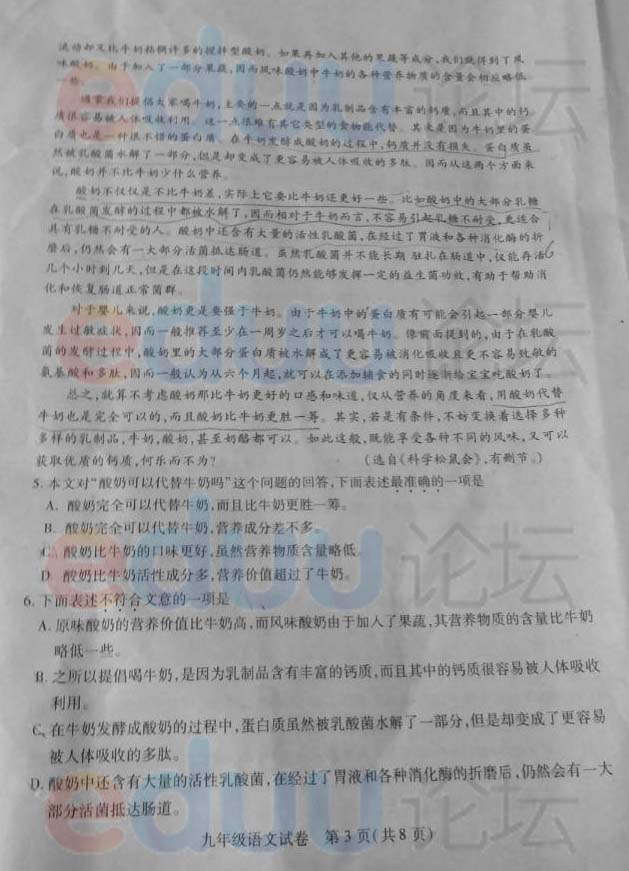 流动却又比牛奶粘稠许多的搅拌型酸奶。如果再加入其他的果蔬等成分,我们就得到了风
味酸奶。由于加入了一部分果蔬,因而风味酸奶中牛奶的各种营养物质的含量会相应略低
一些。
通常我们提倡大家喝牛奶,主要的一点就是因为乳制品含有丰富的钙质,而且其中的钙
质很容易被人体吸收利用。这一点很难有其它类型的食物能代替。其次是因为牛奶里的蛋
白质也是一种很不错的蛋白质。在牛奶发酵成酸奶的过程中,钙质并没有损失。蛋白质虽
然被乳酸菌水解了一部分,但是却变成了更容易被人体吸收的多肽。因而从这两个方面来
说,酸奶并不比牛奶少什么营养。
酸奶不仅仅是不比牛奶差,实际上它要比牛奶还更好一些。比如酸奶中的大部分乳糖
在乳酸菌发酵的过程中都被水解了,因而相对于牛奶而言,不容易引起乳糖不耐受,更适合
具有乳糖不耐受的人。酸奶中还含有大量的活性乳酸菌,在经过了胃液和各种消化酶的折
磨后,仍然会有一大部分活菌抵达肠道。虽然乳酸菌并不能长期驻扎在肠道中,仅能存活
几个小时到几天,但是在这段时间内乳酸菌仍然能够发挥一定的益生菌功效,有助于帮助消
化和恢复肠道正常菌群。
对于婴儿来说,酸奶更是要强于牛奶。由于牛奶中的蛋白质有可能会引起一部分婴儿
发生过敏症状,因而一般推荐至少在一周岁之后才可以喝牛奶。像前面提到的,由于在乳酸
菌的发酵过程中,酸奶里的大部分蛋白质被水解成了更容易被消化吸收且更不容易致敏的
氨基酸和多肽,因而一般认为从六个月起,就可以在添加辅食的同时逐渐给宝宝吃酸奶了。
总之,就算不考虑酸奶那比牛奶更好的口感和味道,仅从营养的角度来看,用酸奶代替
牛奶也是完全可以的,而且酸奶比牛奶更胜一筹。其实,若是有条件,不妨变换着选择多种
多样的乳制品,牛奶,酸奶,甚至奶酪都可以。如此这般,既能享受各种不同的风味,又可以
获取优质的钙质,何乐而不为? (选自《科学松鼠会》,有删节。)
5. 本文对“酸奶可以代替牛奶吗”这个问题的回答,下面表述最准确的一项是
A. 酸奶完全可以代替牛奶,而且比牛奶更胜一筹。
B. 酸奶完全可以代替牛奶,营养成分差不多。
C. 酸奶比牛奶的口味更好,虽然营养物质含量略低。
D. 酸奶比牛奶活性成分多,营养价值超过了牛奶。
6. 下面表述不符合文意的一项是
A. 原味酸奶的营养价值比牛奶高,而风味酸奶由于加入了果蔬,其营养物质的含量比牛奶
略低一些。
B. 之所以提倡喝牛奶,是因为乳制品含有丰富的钙质,而且其中的钙质很容易被人体吸收
利用。
C. 在牛奶发酵成酸奶的过程中,蛋白质虽然被乳酸菌水解了一部分,但是却变成了更容易
被人体吸收的多肽。
D. 酸奶中还含有大量的活性乳酸菌,在经过了胃液和各种消化酶的折磨后,仍然会有一大
部分活菌抵达肠道。
九年级语文试卷 第 3 页(共 8 页)
eduu论坛
eduu论坛
eduu论坛
eduu论坛